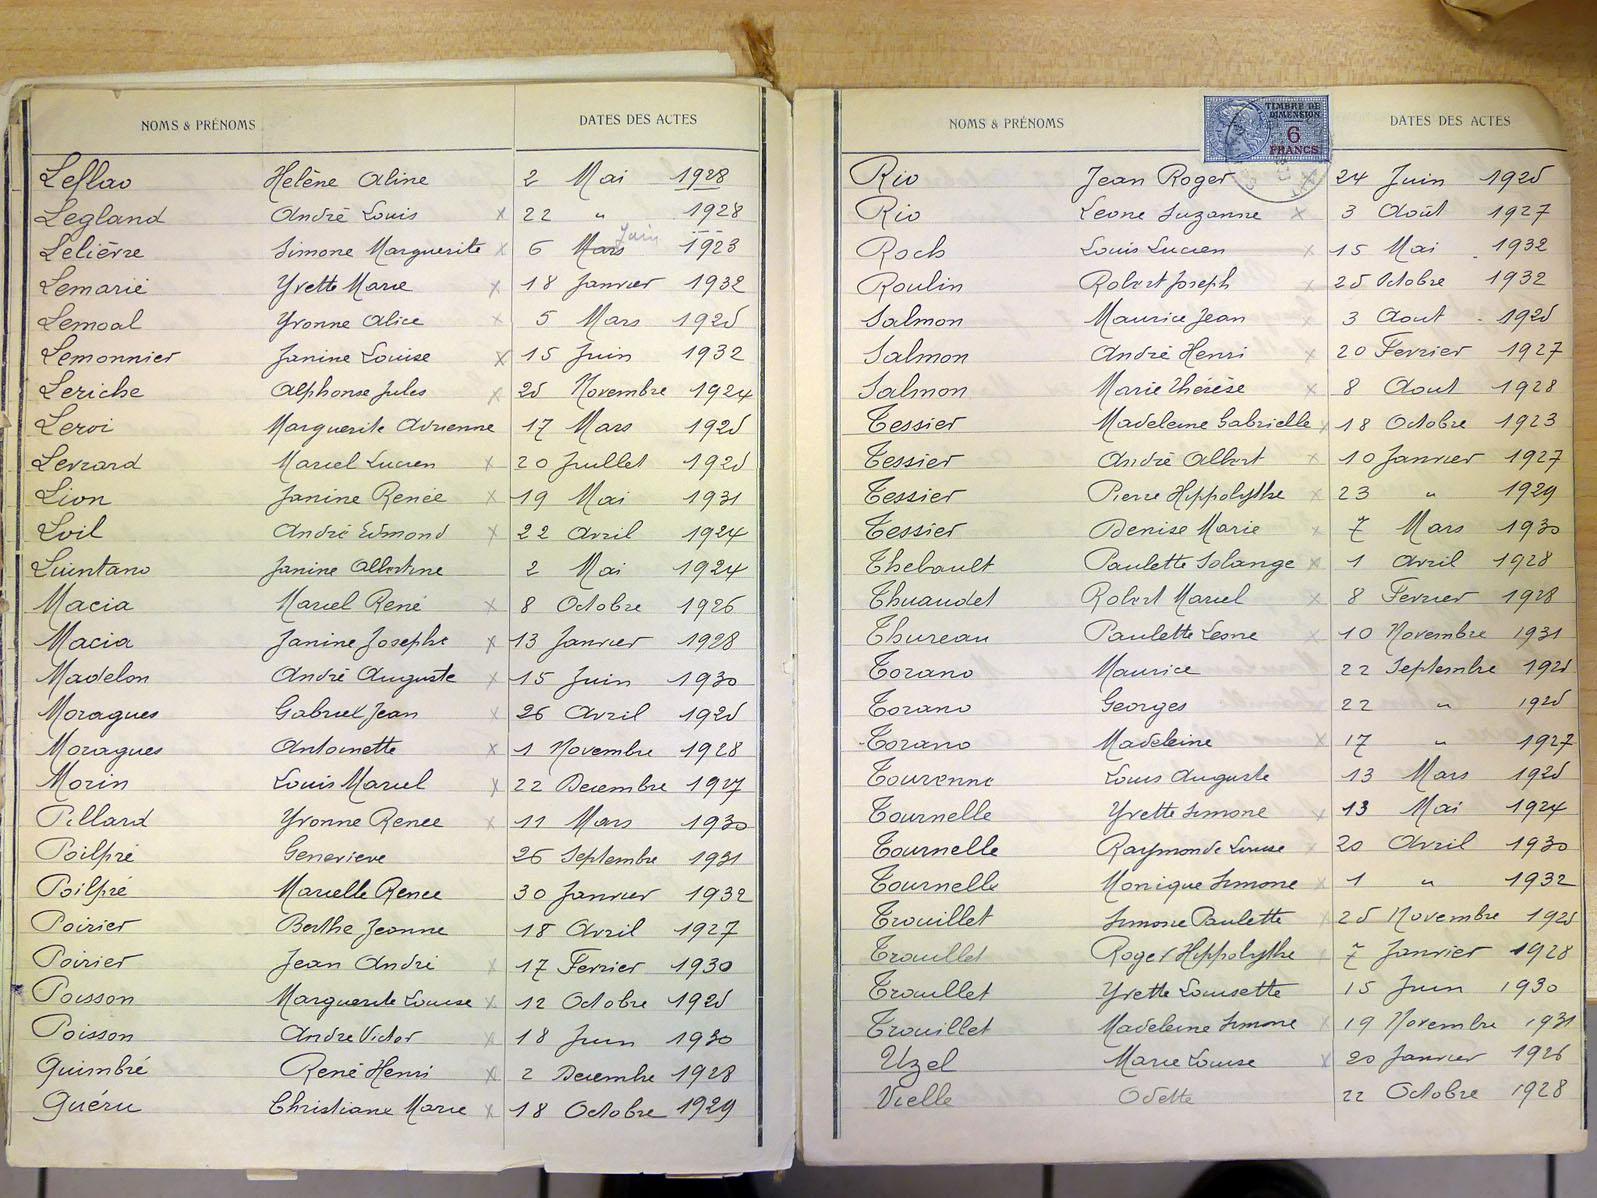 NOMS & PRÉNOMS DATES DES ACTES
Leflao Helène Aline 2 Mai 1928
Legland André Louis x 22 " 1928
Juin
Lelièvre Simone Marguerite x 6 Mars 1923
Lemarié Yvette Marie x 18 Janvier 1932
Lemoal Yvonne Alice x 5 Mars 1925
Lemonnier Janine Louise x 15 Juin 1932
Leriche Alphonse Jules x 25 Novembre 1924
Leroi Marguerite Adrienne 17 Mars 1925
Levrard Marcel Lucien x 20 Juillet 1925
Lion Janine Renée x 19 Mai 1931
Loil André Edmond x 22 Avril 1924
Janine Albertine 2 Mai 1924
Macia Marcel René x 8 Octobre 1926
Macia Janine Josephe x 13 Janvier 1928
Madelon André Auguste x 15 Juin 1930
Moragues Gabriel Jean x 26 Avril 1925
Moragues Antoinette x 1 Novembre 1928
Morin Louis Marcel x 22 Decembre 1927
Pillard Yvonne Renee x 11 Mars 1930
Poilpré Genevieve 26 Septembre 1931
Poilpré Marcelle Renee 30 Janvier 1932
Poirier Berthe Jeanne 18 Avril 1927
Poirier Jean André x 17 Fevrier 1930
Poisson Marguerite Louise x 12 Octobre 1925
Poisson Andre Victor x 18 Juin 1930
Quimbré René Henri x 2 Decembre 1928
Quéru Christiane Marie x 18 Octobre 1929
NOMS & PRÉNOMS DATES DES ACTES
TIMBRE DE
DIMENSION
6
FRANCS
Rio Jean Roger x 24 Juin 1925
Rio Leone Suzanne x 3 Août 1927
Roch Louis Lucien x 15 Mai 1932
Roulin Robert Joseph x 25 Octobre 1932
Salmon Maurice Jean x 3 Aout 1925
Salmon André Henri x 20 Fevrier 1927
Salmon Marie Thérèse x 8 Aout 1928
Tessier Madeleine Gabrielle x 18 Octobre 1923
Tessier André Albert x 10 Janvier 1927
Tessier Pierre Hippolythe x 23 " 1929
Tessier Denise Marie x 7 Mars 1930
Thebault Paulette Solange x 1 Avril 1928
Thuaudet Robert Marcel x 8 Fevrier 1928
Thureau Paulette Leone x 10 Novembre 1931
Torano Maurice 22 Septembre 1925
Torano Georges 22 " 1925
Torano Madeleine x 17 " 1927
Tourenne Louis Auguste 13 Mars 1925
Tournelle Yvette Simone x 13 Mai 1924
Tournelle Raymonde Louise x 20 Avril 1930
Tournelle Monique Simone x 1 " 1932
Trouillet Simone Paulette x 25 Novembre 1925
Trouillet Roger Hippolythe x 7 Janvier 1928
Trouillet Yvette Louisette 15 Juin 1930
Trouillet Madeleine Simone x 19 Novembre 1931
Uzel Marie Louise x 20 Janvier 1926
Vielle Odette 22 Octobre 1928